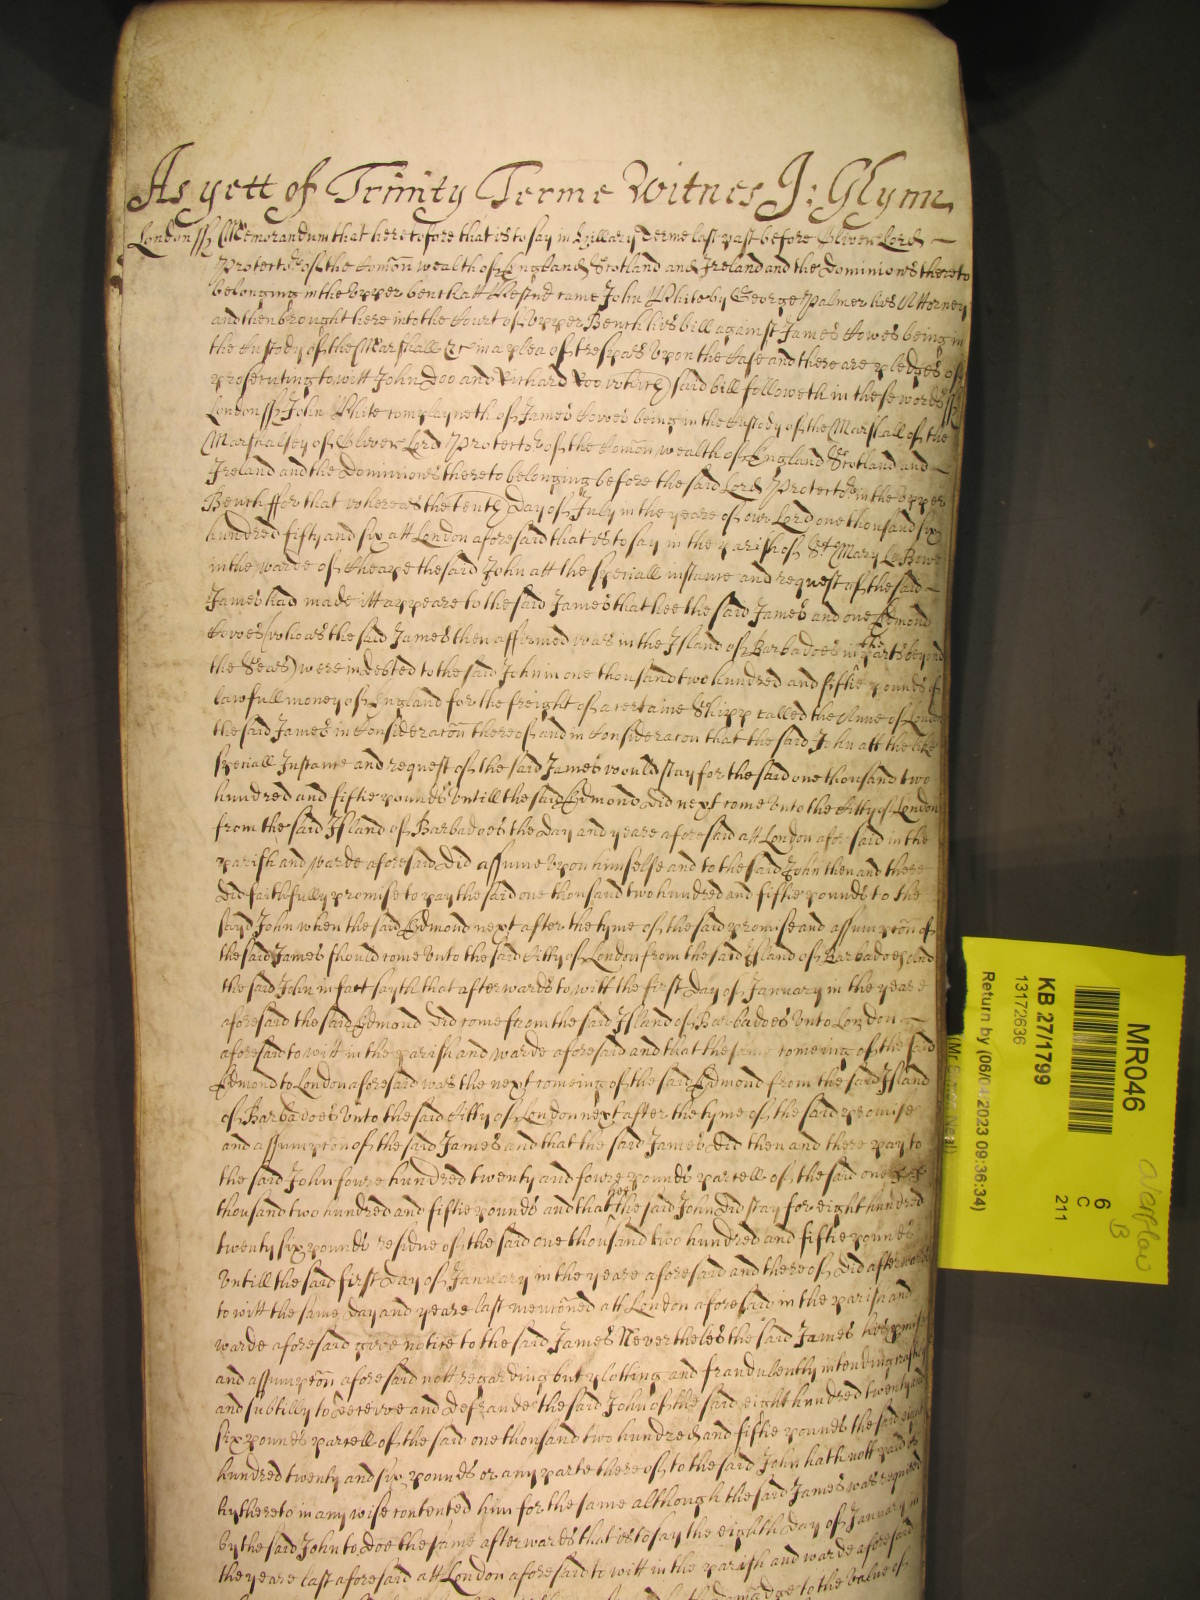 As yett of Trinity Terme Witnes J: Glynn
London ss Memorandum that heretofore that is to say in Hillary Terme last past before Oliver Lord
Protector of the Comon wealth of England Scotland and Ireland and the Dominions thereto
belonging in the Upper bench att Westmr came John White by George Palmer his Attorney
and then brought here into the Court of Upper Bench his bill against James Cowes being in
the Custody of the Marshall &c in a plea of trespas upon the Case and there are pledges of
prosecuting to witt John Doo and Richard Roo which said bill followeth in these words ss
London ss John White complayneth of James Cowes being in the Custody of the Marshall of the
Marshalsey of Oliver Lord Protector of the Comon wealth of England Scotland and
Ireland and the Dominiones thereto belonging before the said Lord Protector in the Upper
Bench ffor that whereas the tenth Day of July in the yeare of our Lord one thousand six
hundred fifty and six att London aforesaid that is to say in the parish of St Mary Le Bowe
in the warde of Cheape the said John att the speciall instance and request of the said
James had made itt appeare to the said James that hee the said James and one Edmond
Cowes (who as the said James then affirmed was in the Island of Barbadoes in the parts beyond
the Seas) were indebted to the said John in one thousand two hundred and fiftie pounds of
lawfull money of England for the freight of a certaine Shipp called the Anne of London
the said James in Consideracon thereof and in Consideracon that the said John att the like
speciall Instance and request of the said James would stay for the said one thousand two
hundred and fiftie pounds Untill the said Edmond did next come Unto the Citty of London
from the said Island of Barbadoes the Day and yeare aforesaid att London aforesaid in the
parish and warde aforesaid did assume upon himselfe and to the said John then and there
did faithfully promise to pay the said one thousand two hundred and fiftie pounds to the
sayd John when the said Edmond next after the tyme of the said promise and assumpcon of
the said James should come Unto the said Citty of London from the said Island of Barbadoes And
the said John in fact sayth that afterwards to witt the first Day of January in the yeare
aforesaid the said Edmond did come from the said Island of Barbadoes Unto London
aforesaid to witt in the parish and warde aforesaid and that the same comeing of the said
Edmond to London aforesaid was the next comeing of the said Edmond from the said Island
of Barbadoes Unto the said Citty of London next after the tyme of the said promise
and assumpcon of the said James and that the said James did then and there pay to
the said John foure hundred twenty and foure pounds parcell of the said one
thousand two hundred and fiftie pounds and that hee the said John did stay for eight hundred
twenty six pounds residue of the said one thousand two hundred and fiftie pounds
Untill the said first Day of January in the yeare aforesaid and thereof did afterwards
to witt the same Day and yeare last menconed att London aforesaid in the parish and
warde aforesaid give notice to the said James Nevertheles the said James his promise
and assumpcon aforesaid nott regarding but plotting and fraudulently intending craftily
and subtilly to deceive and defraude the said John of the said eight hundred twenty and
six pounds parcell of the said one thousand two hundred and fiftie pounds the said eight
hundred twenty and six pounds or any parte thereof to the said John hath nott paid or
hythereto in any wise contented him for the same although the said James was required
by the said John to doe the same afterwards that is to say the eighth Day of January in
the yeare last aforesaid att London aforesaid to witt in the parish and warde aforesaid
to the value of
MR046
6
C
211
KB 27/1799
13172636
Return by (06/04/2023 09:36:34)
Overflow
B